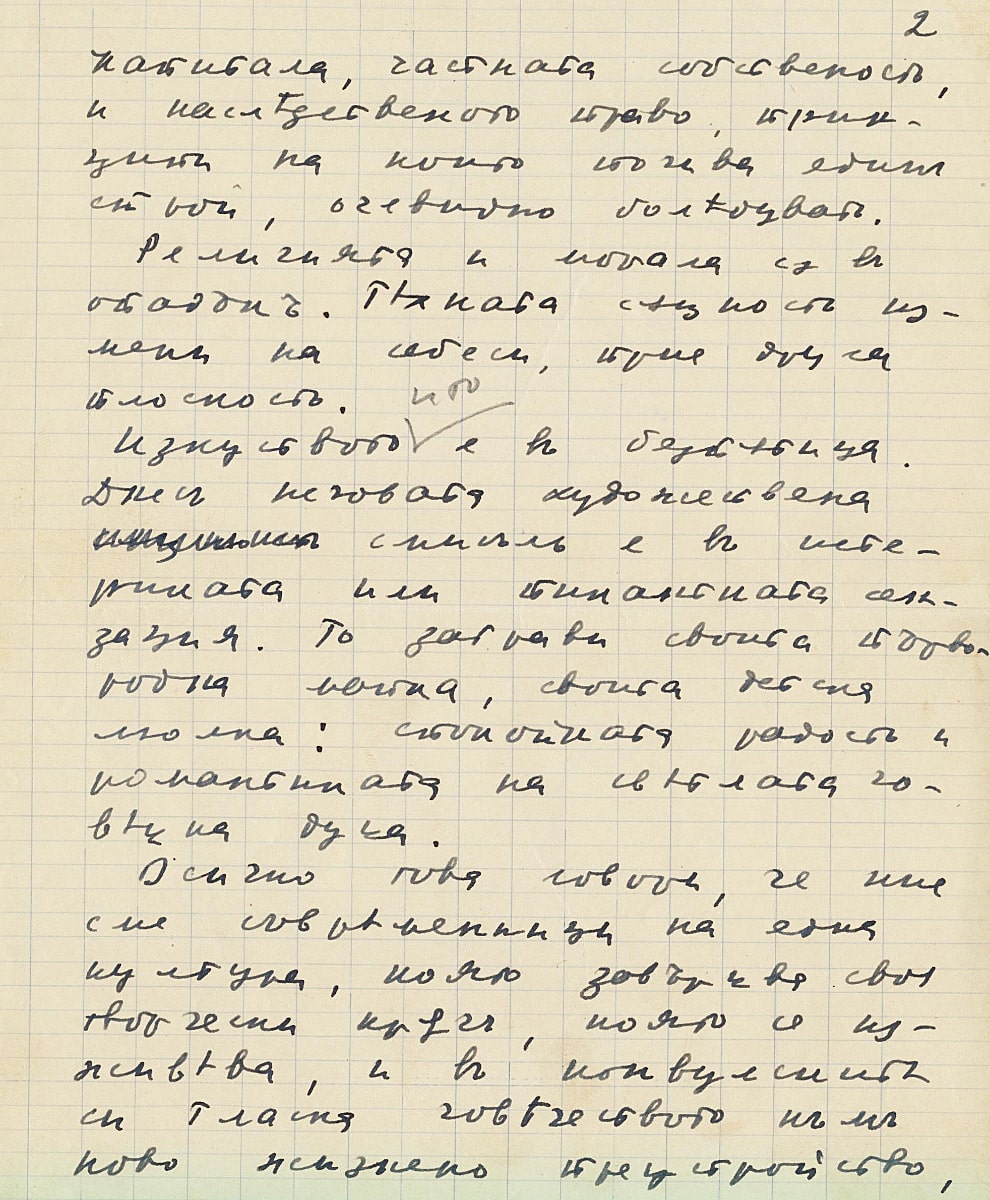 2
капитала, частната собственость,
и наслѣдственото право, прин-
ципи на които почива единъ
строй, очевидно болѣдуватъ.
Религията и морала сѫ въ
упадъкъ. Тѣхната сѫщность из-
мени на себеси, прие друга
плоскость.
що
Изкуството е въ безпѫтица.
Днесъ неговата художествена
смисълъ е въ исте-
риката или пикантната сен-
зация. То забрави своята първо-
родна рожка, своята детска
люлка: спокойната радость и
романтиката на свѣтлата чо-
вѣшка душа.
Всичко това говори, че ние
сме съврѣменници на една
култура, която завършва своя
творчески крѫгъ, която се из-
живѣва, и въ конвулсиитѣ
си тласка човѣчеството къмъ
ново жизнено преустройство,